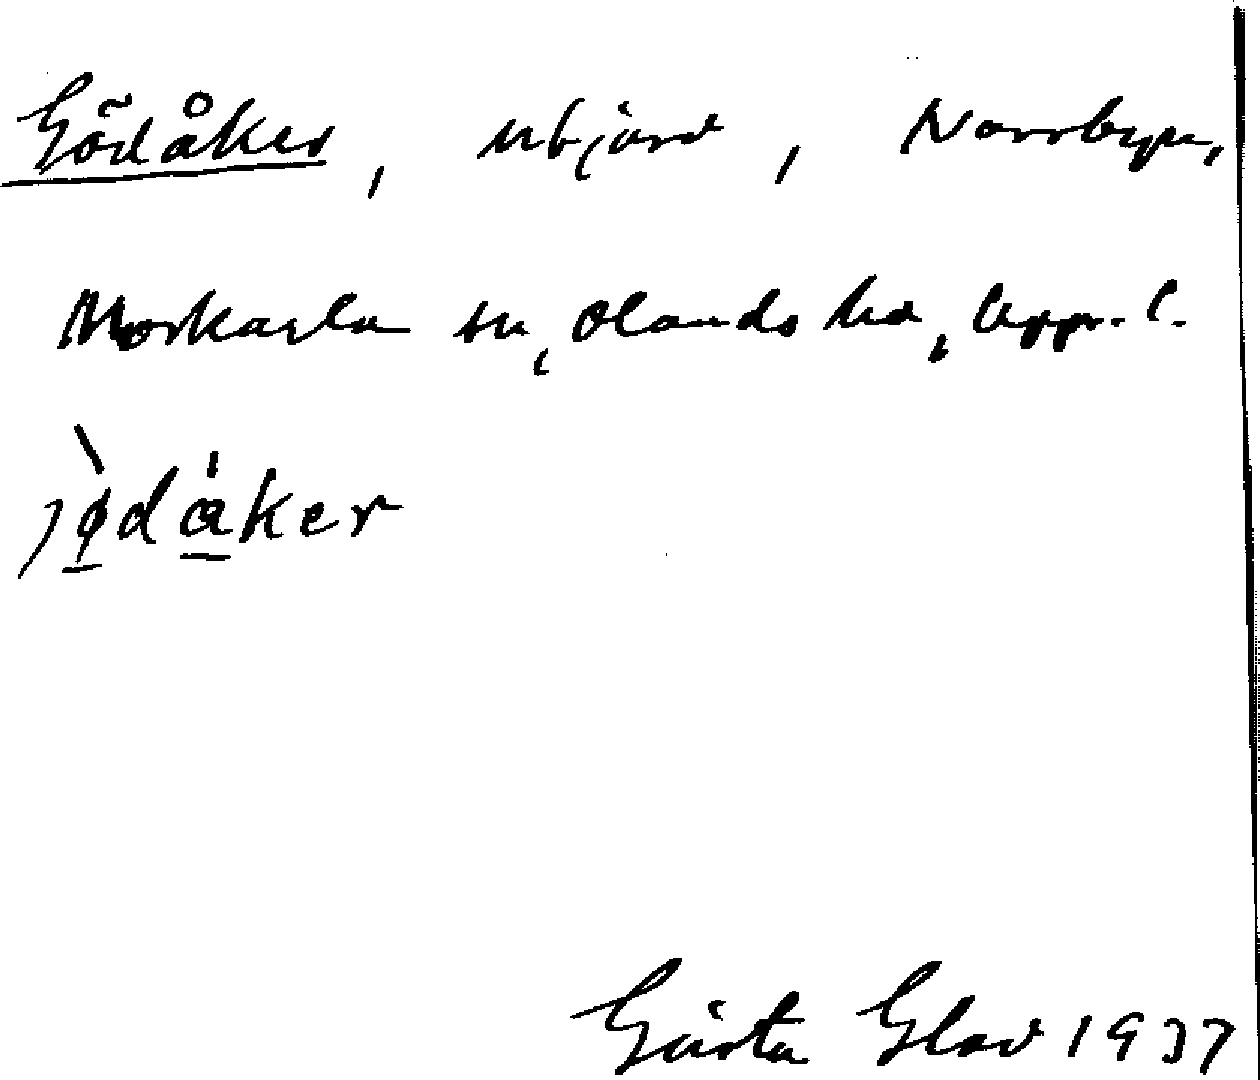 Gödåker, utjord, Norrbyn,
Morkarla sn, Olands hd, Uppl.
jødåker
Gösta Elov 1937